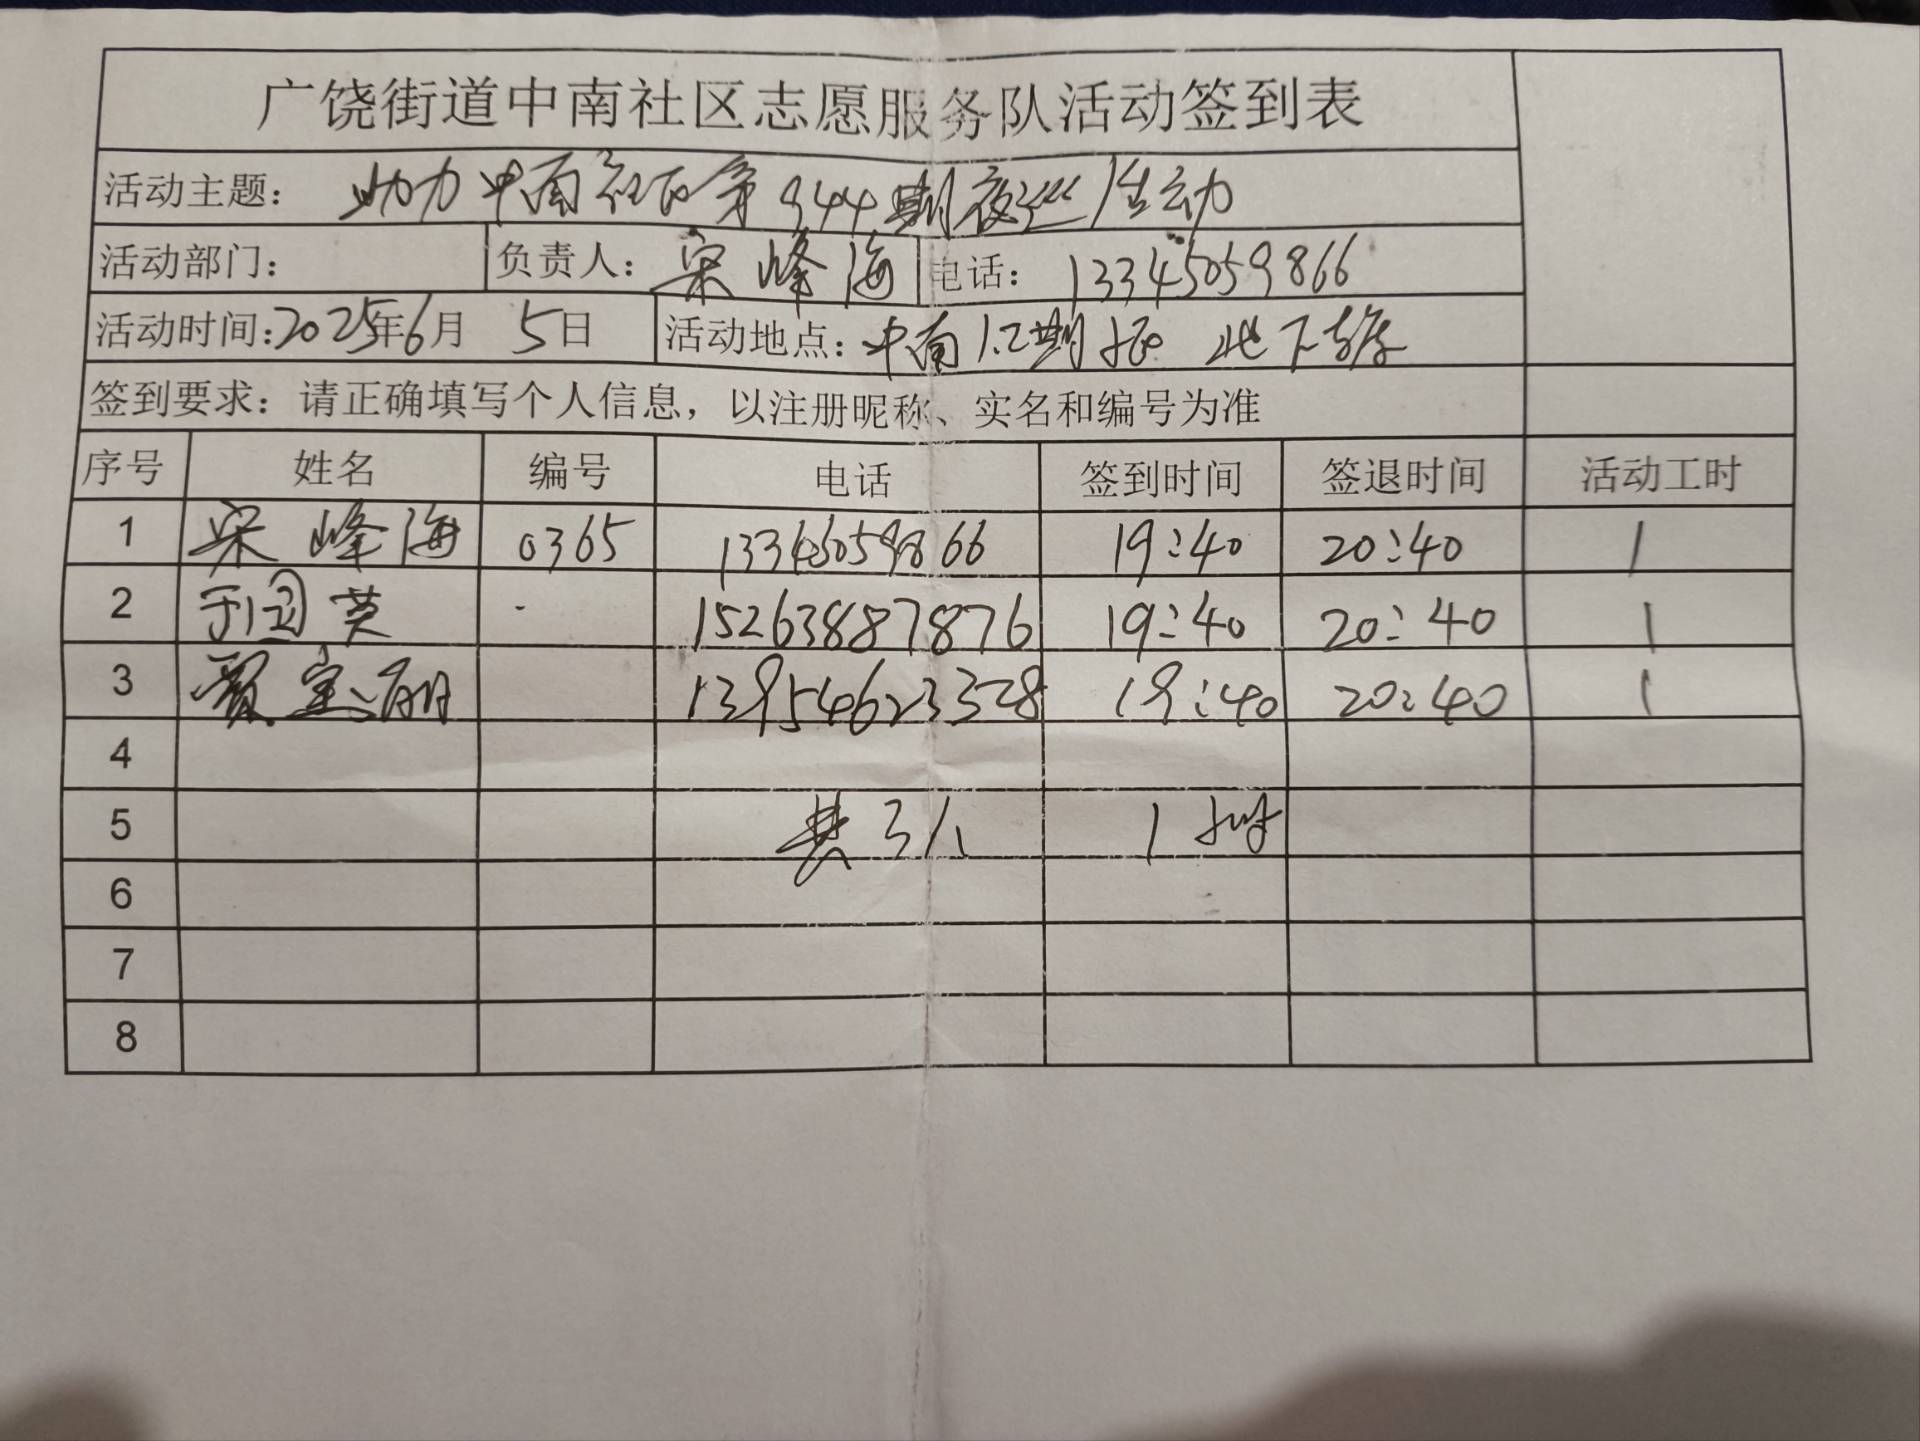 广饶街道中南社区志愿服务队活动签到表
活动主题： 助力中南社区第944期夜巡活动
活动部门： 负责人：宋峰海 电话：13345059866
活动时间：2025年6月 5日 活动地点：中南1.2期 地下
签到要求：请正确填写个人信息，以注册昵称、实名和编号为准
序号 姓名 编号 电话 签到时间 签退时间 活动工时
1 宋峰海 0365 13345059866 19:40 20:40 1
2 于国英 15263887876 19:40 20:40 1
3 贾宝丽 13954623328 19:40 20:40 1
4
5 共3人 1小时
6
7
8